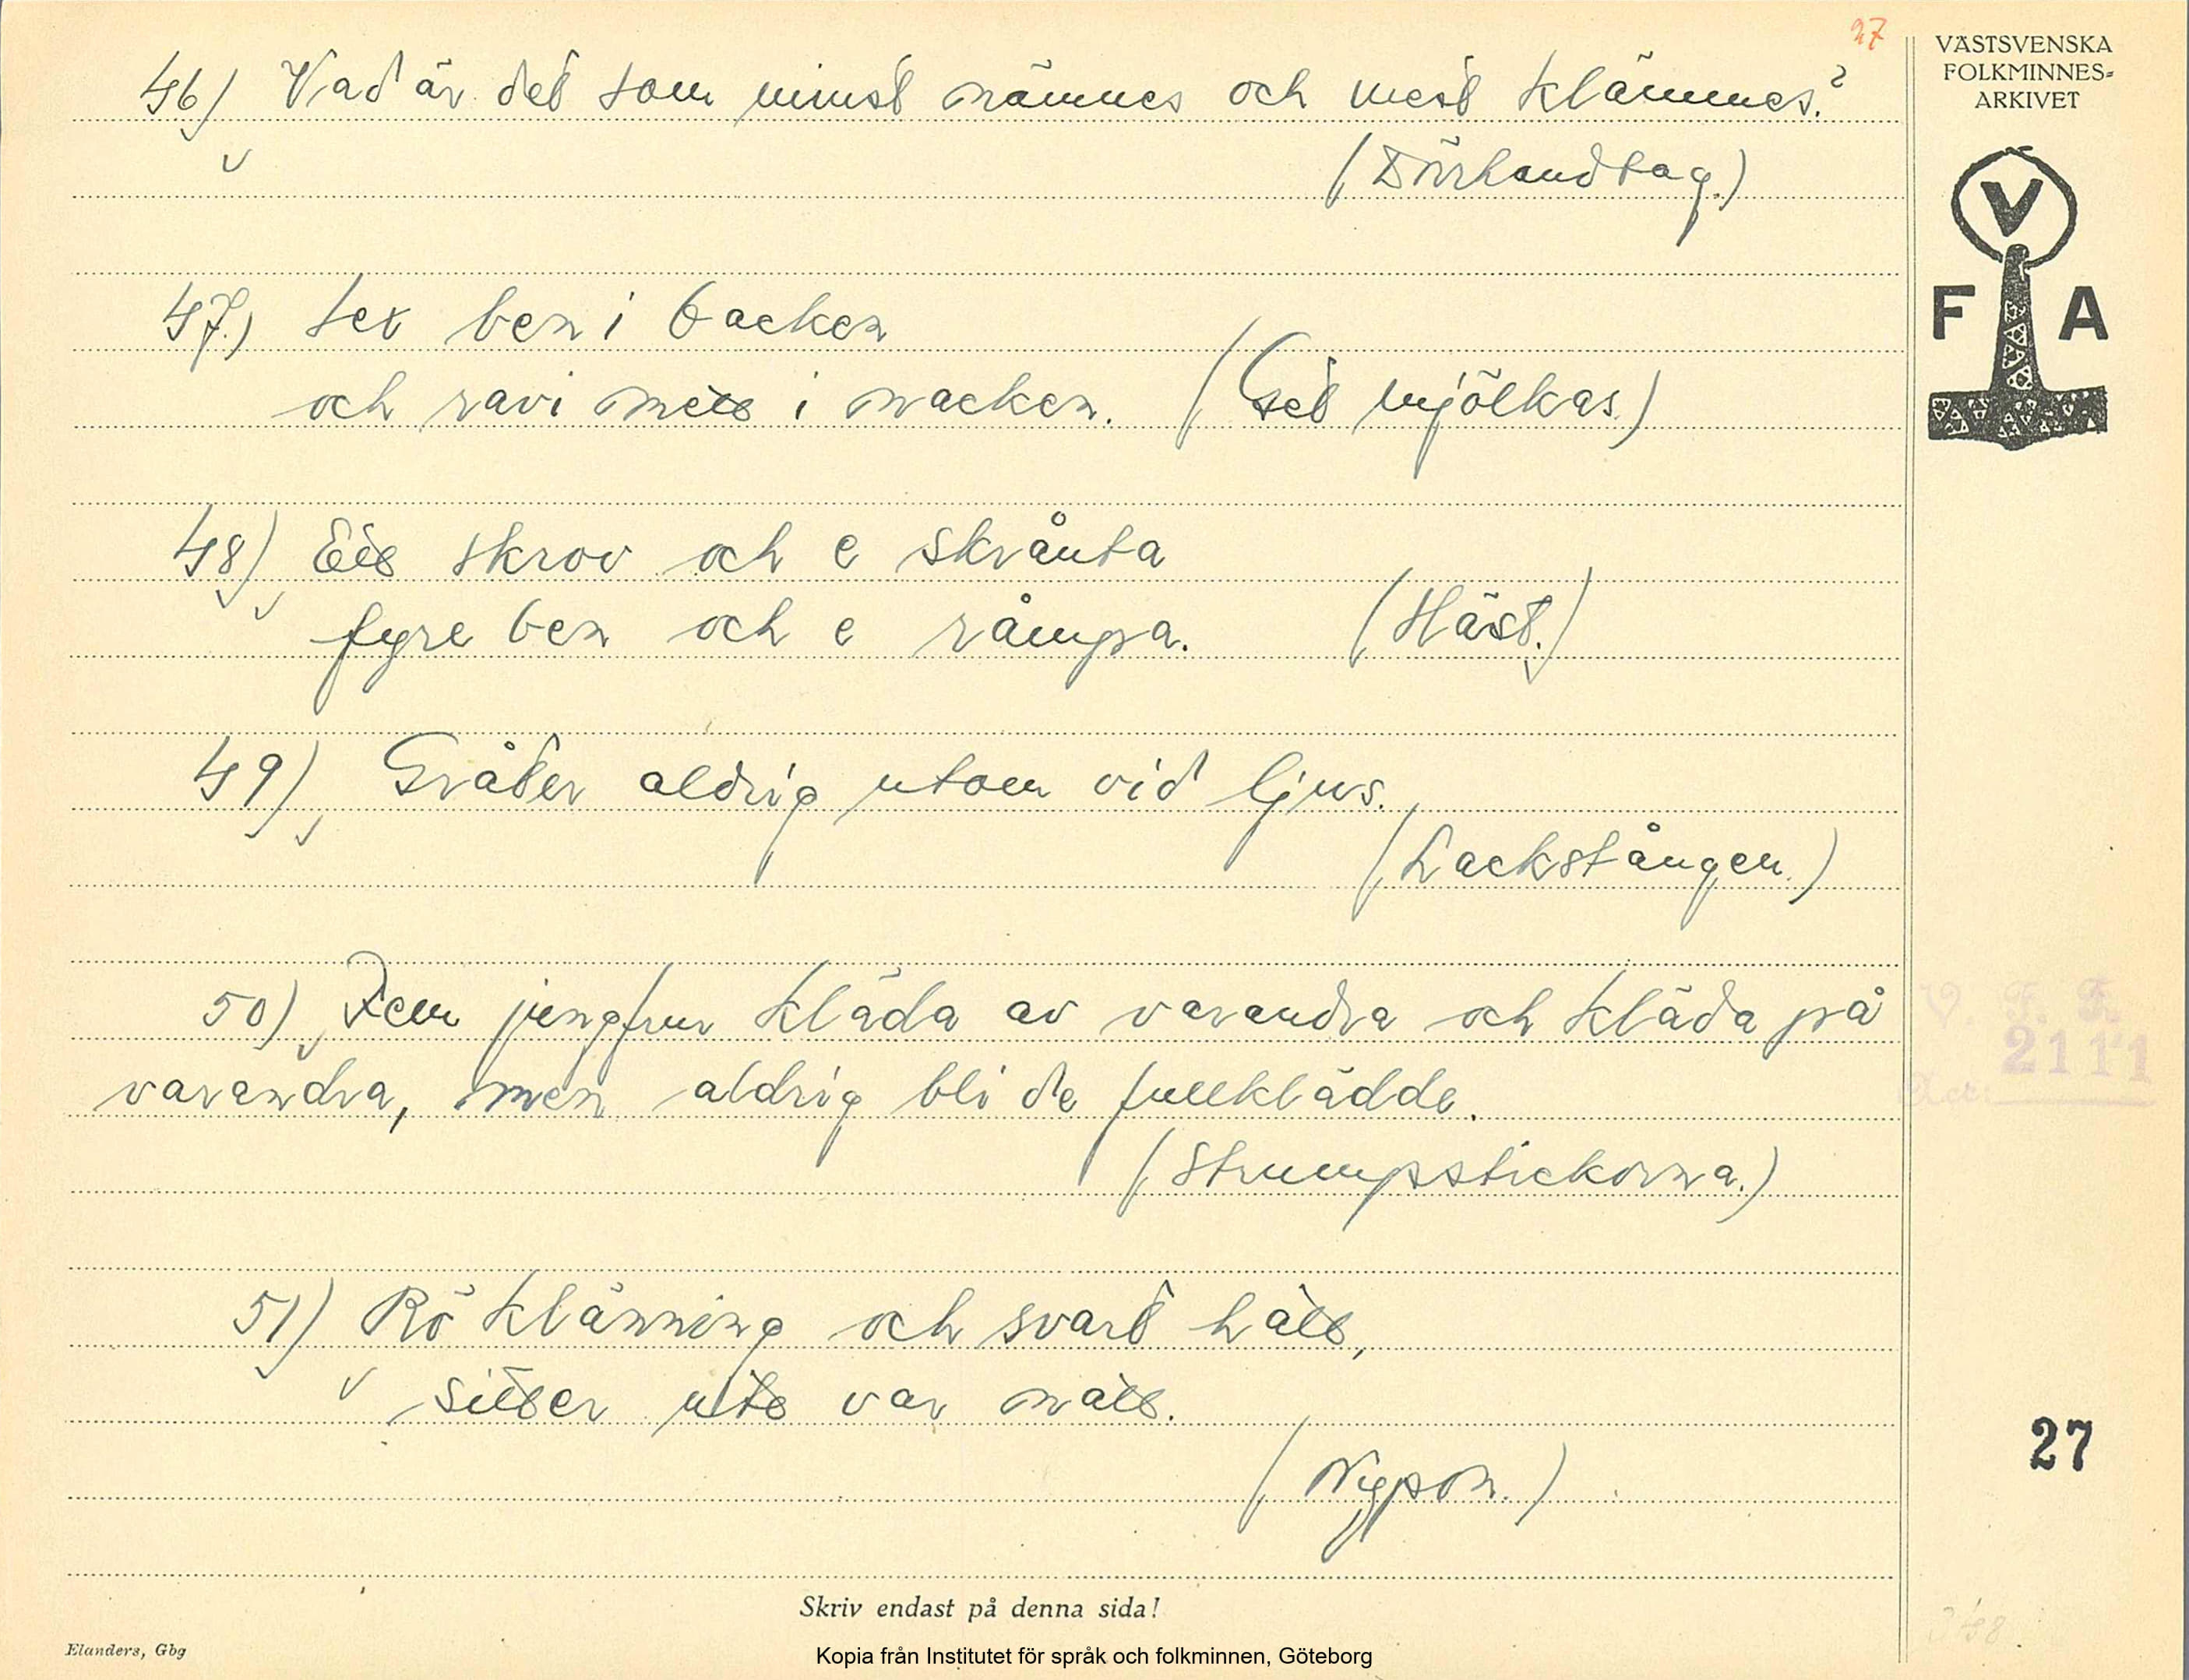 27
VÄSTSVENSKA
FOLKMINNES=
ARKIVET
V
F A
46) Vad är det som minst nämnes och mest klämmes?
(Dörrhandtag.)
47.) Sex ben i backen
och ravi mett i nacken. (Get mjölkas.)
48) Ett skrov och e skrånta
fyre ben och e råmpa. (Häst.)
49) Gråter aldrig utom vid ljus.
(Lackstången.)
50) Fem jungfrur kläda av varandra och kläda på
varandra, men aldrig bli de fullklädde.
(Strumpstickorna.)
V. F. F.
2111
Acc:
51) Rö klänning och svart hatt,
sitter ute var natt.
(Nypon.)
27
Skriv endast på denna sida!
Elanders, Gbg
Kopia från Institutet för språk och folkminnen, Göteborg